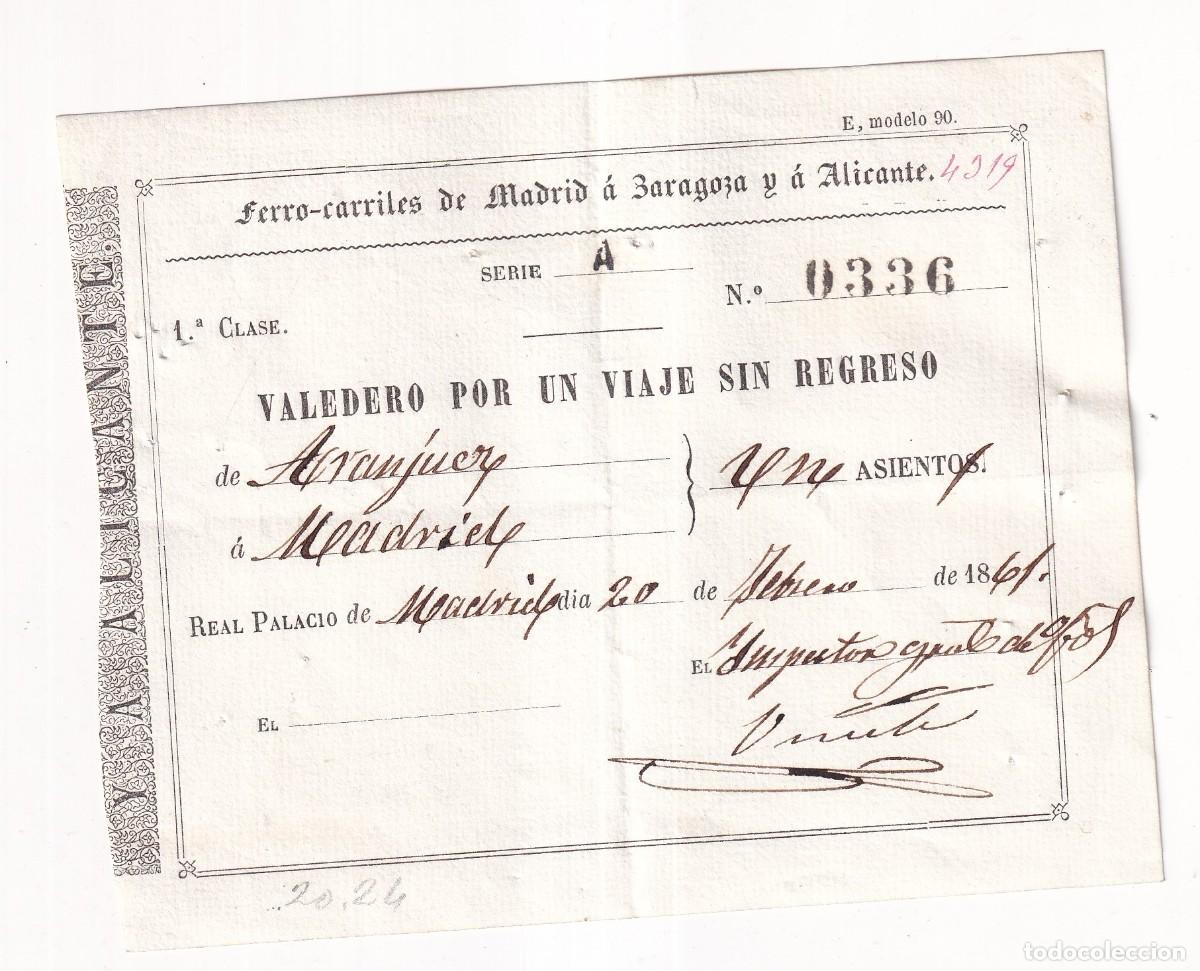 E, modelo 90.
Ferro-carriles de Madrid á Zaragoza y á Alicante. 4319
SERIE A
N.º 0336
1.ª CLASE.
VALEDERO POR UN VIAJE SIN REGRESO
de Aranjuez
Un ASIENTOS.
á Madrid
REAL PALACIO de Madrid dia 20 de Febrero de 1861.
EL Inspector gral de
EL
Y Á ALICANTE.
20.24
todocoleccion